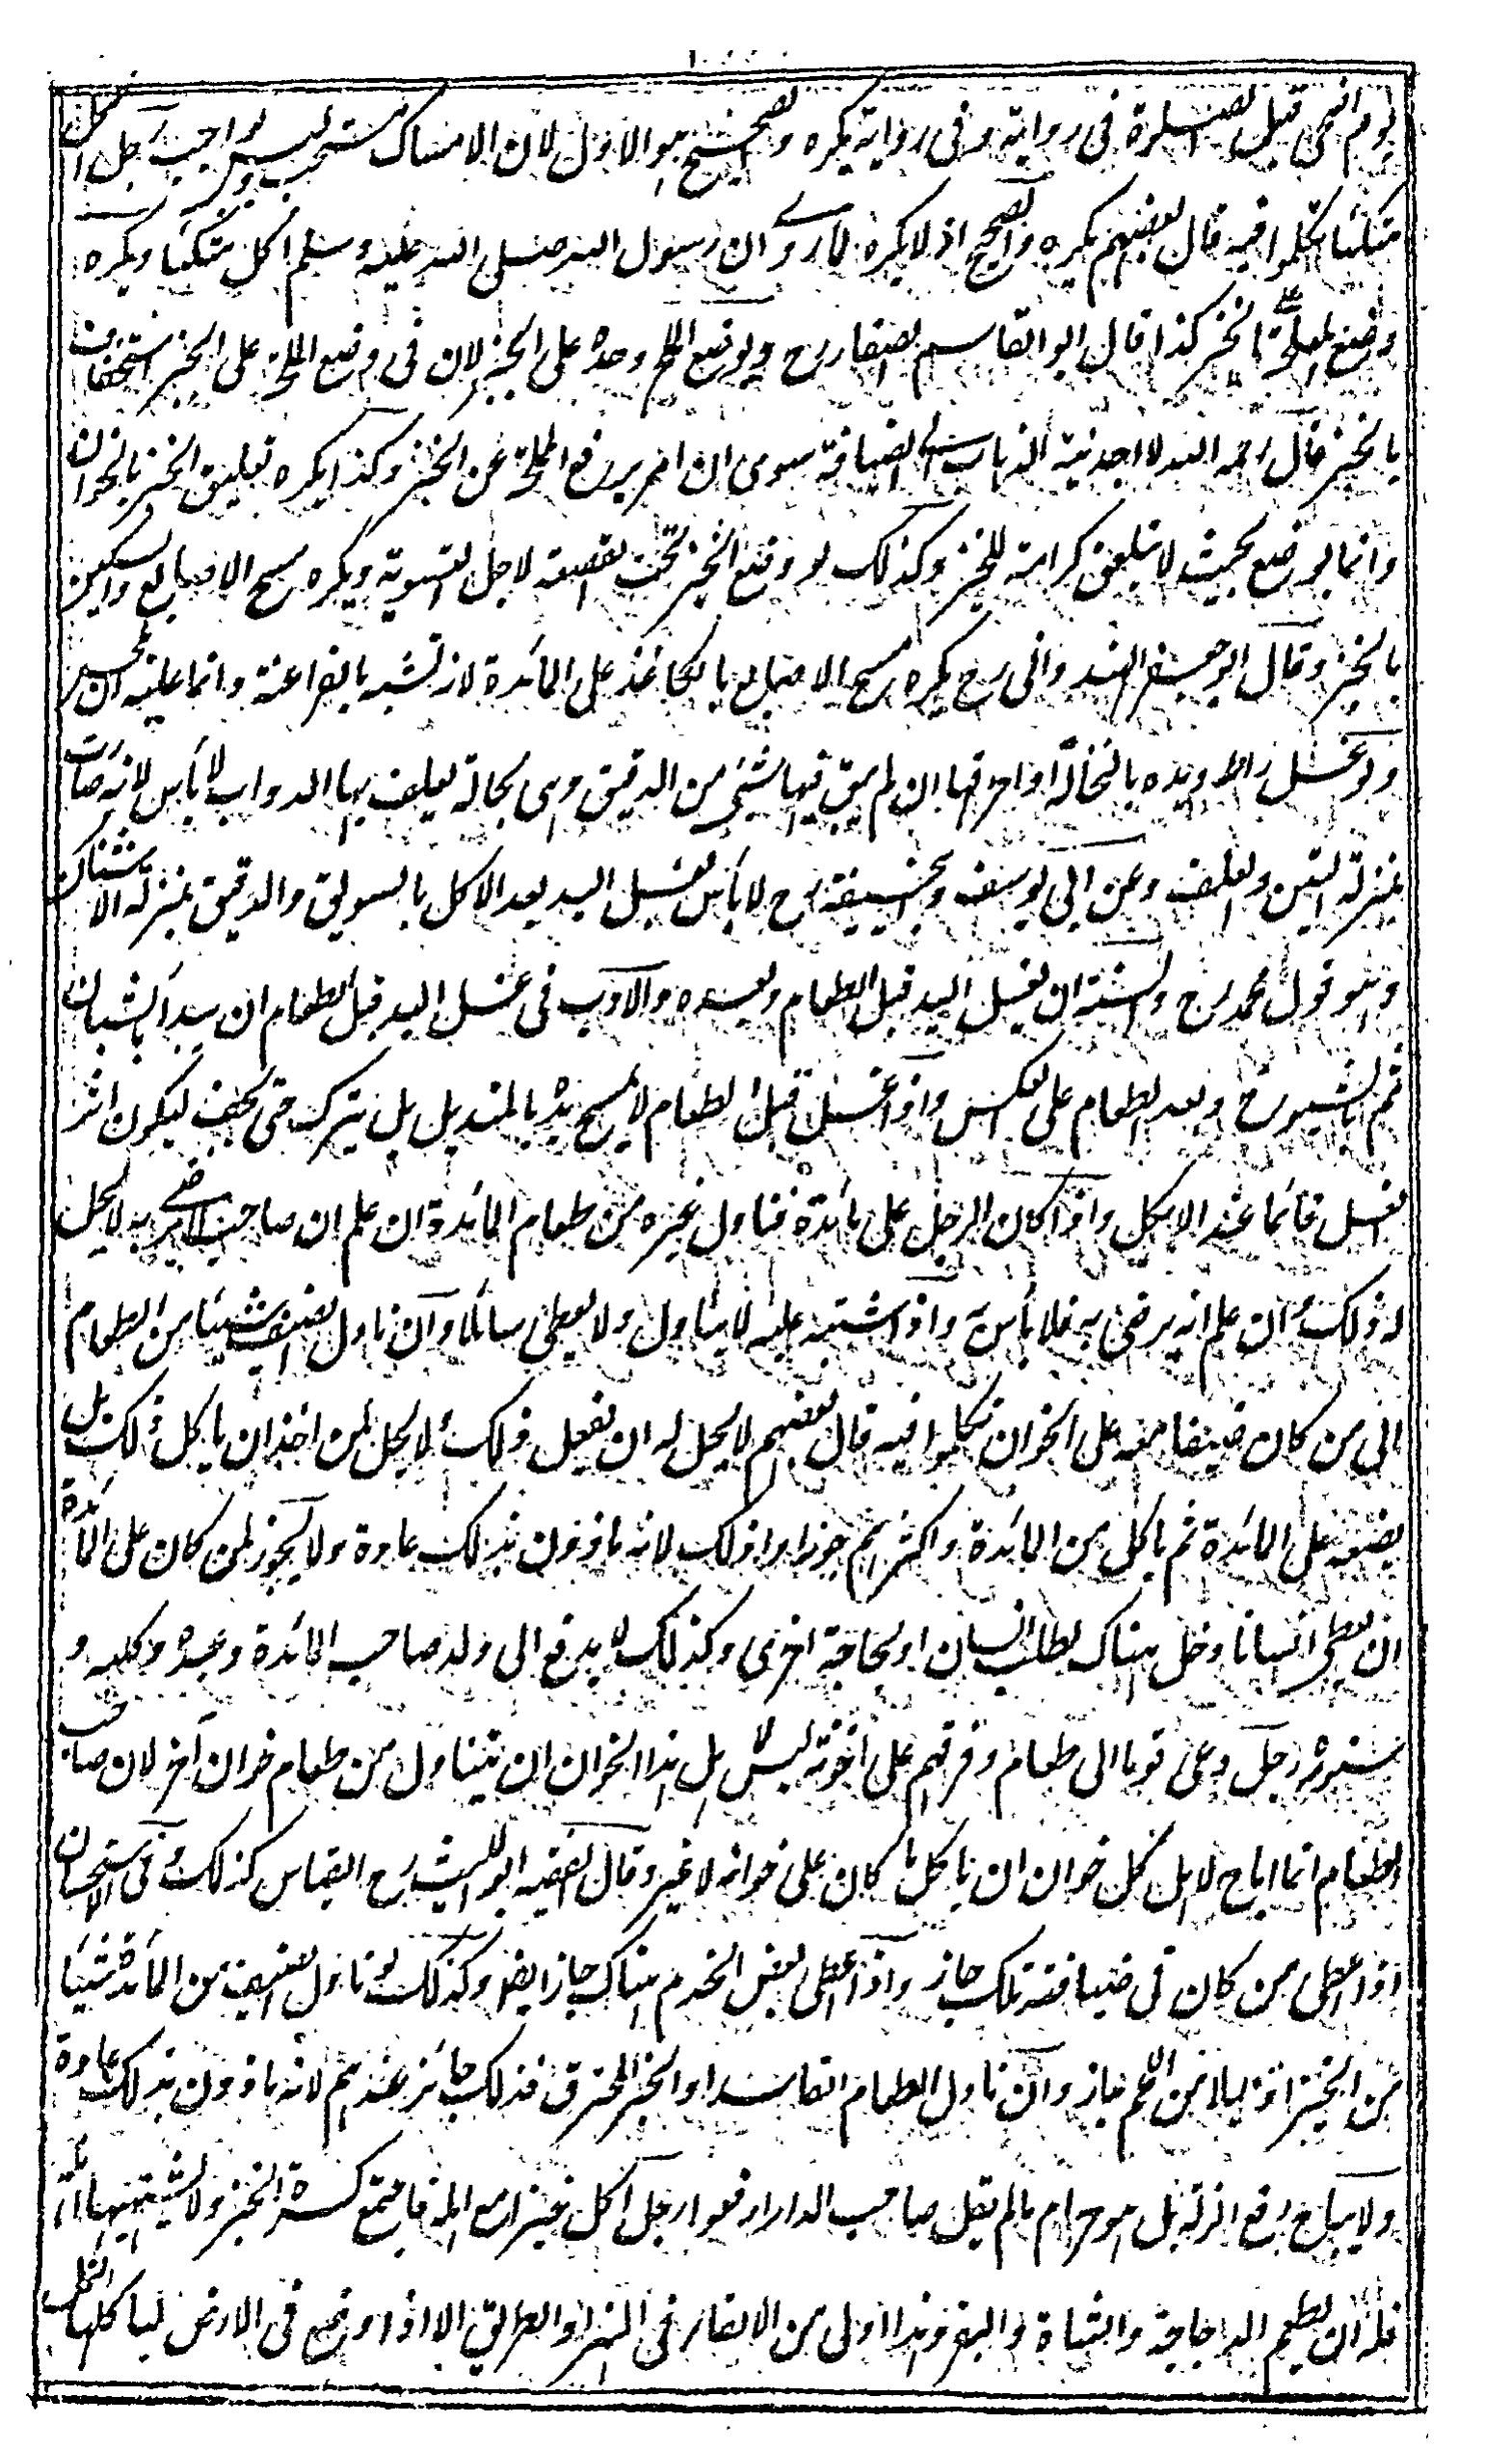 يوم اضحى قبل الصلوة فى رواية وفى رواية يكره والصحيح هو الاول لان الامساك مستحب وليس بواجب رجل اكل
متكئا تكلموا فيه قال بعضهم يكره والصحيح انه لا يكره لما روى ان رسول الله صلى الله عليه وسلم اكل متكئا ويكره
وضع المملحة على الخبز كذا قال ابو القاسم الصفار رح ويوضع الملح وحده على الخبز لان فى وضع المملحة على الخبز استخفاف
بالخبز قال رحمه الله لا اجد نية الذهاب الى الضيافة سوى ان امر برفع المملحة عن الخبز وكذا يكره تعليق الخبز بالخوان
وانما يوضع بحيث لا يتعلق كرامة للخبز وكذلك لو وضع الخبز تحت القصعة لاجل التسوية ويكره مسح الاصابع والسكين
بالخبز وقال ابو جعفر الهندوانى رح يكره مسح الاصابع بالكاغذ على المائدة لانه تشبه بالفراعنة وانما عليه ان يلحس
ولو غسل راسه ويده بالنخالة او احرقها ان لم يبق فيها شئ من الدقيق وهى نخالة يعلف بها الدواب لا بأس لانه صارت
بمنزلة التبن والعلف وعن ابى يوسف وابى حنيفة رح لا بأس بغسل اليد بعد الاكل بالسويق والدقيق بمنزلة الاشنان
وهو قول محمد رح والسنة ان يغسل اليد قبل الطعام وبعده والادب فى غسل اليد قبل الطعام ان يبدأ بالشبان
ثم بالشيوخ وبعد الطعام على العكس واذا غسل قبل الطعام لا يمسح يده بالمنديل بل يترك حتى يجف ليكون اثر
الغسل قائما عند الاكل واذا كان الرجل على مائدة فناول غيره من طعام المائدة ان علم ان صاحبه لا يرضى به لا يحل
له ذلك وان علم انه يرضى به فلا بأس به واذا اشتبه عليه لا يناول ولا يعطى سائلا وان ناول الضيف شيئا من الطعام
الى من كان ضيفا معه على الخوان تكلموا فيه قال بعضهم لا يحل له ان يفعل ذلك ولا يحل لمن اخذ ان يأكل ذلك بل
يضعه على المائدة ثم يأكل من المائدة واكثرهم جوزوا ذلك لانه مأذون بذلك عادة ولا يجوز لمن كان على المائدة
ان يعطى انسانا دخل هناك لطلب انسان او لحاجة اخرى وكذلك لا يدفع الى ولد صاحب المائدة وعبده وكلبه و
سنوره رجل دعى قوما الى طعام وفرقهم على اخونة ليس لاهل هذا الخوان ان يتناول من طعام خوان آخر لان صاحب
الطعام انما اباح لاهل كل خوان ان ياكل ما كان على خوانه لا غير وقال الفقيه ابو الليث رح القياس كذلك وفى الاستحسان
اذا اعطى من كان فى ضيافته تلك جاز واذا اعطى بعض الخدم هناك جاز ايضا وكذلك لو ناول الضيف من المائدة شيئا
من الخبز او قليلا من اللحم جاز وان ناول الطعام الفاسد او الخبز المحترق فذلك جائز عندهم لانه مأذون بذلك عادة
ولا يباح رفع الزلة بل هو حرام ما لم يقل صاحب الدار ارفعوا رجل اكل خبزا مع اهله فاجتمع كسرة الخبز ولا يشتهيها اهله
فله ان يطعم الدجاجة والشاة والبقر وهذا اولى من الالقاء فى النهر او الطريق الا اذا وضع فى الارض ليأكلها النمل